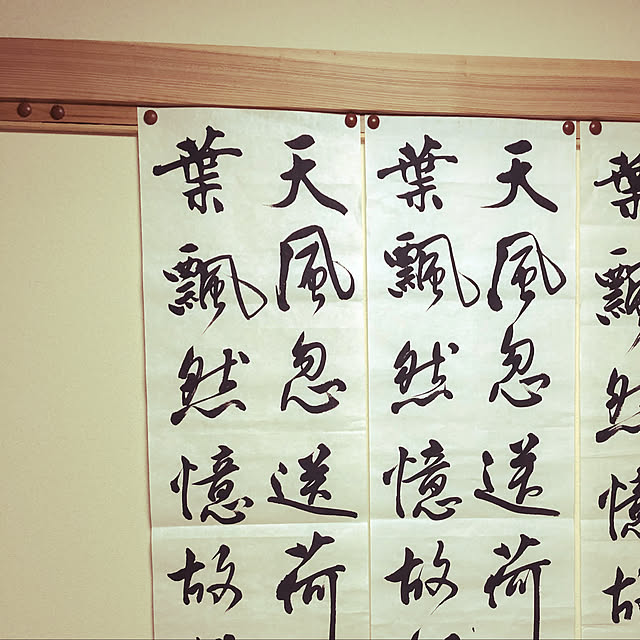 天風忽送荷
葉飄然憶故
天風忽送荷
葉飄然憶故
葉飄然憶故